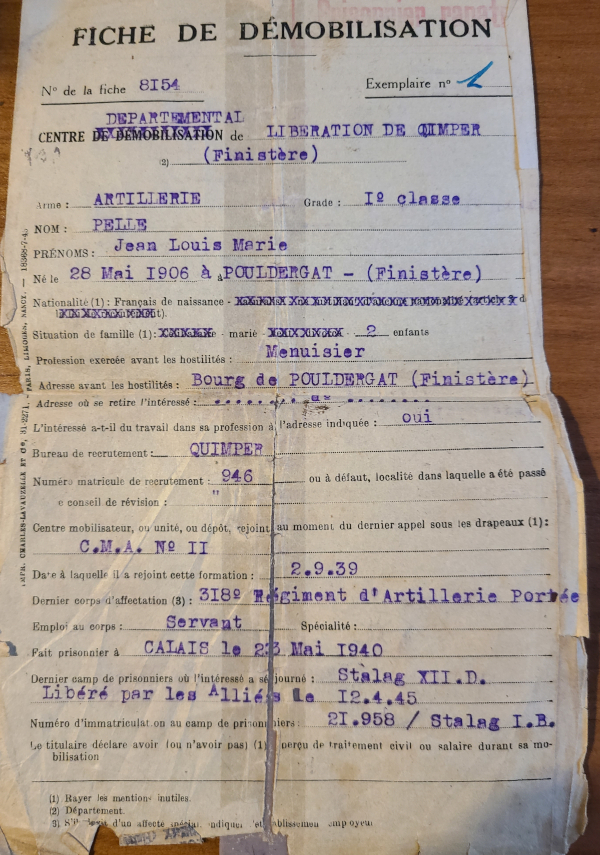 Prisonnier rapat
FICHE DE DÉMOBILISATION
N° de la fiche 8I54
Exemplaire n° 1
DEPARTEMENTAL
CENTRE DE DÉMOBILISATION de LIBERATION DE QUIMPER
(2) (Finistère)
Arme : ARTILLERIE Grade : Iº classe
NOM : PELLE
PRÉNOMS : Jean Louis Marie
Né le 28 Mai I906 à à POULDERGAT - (Finistère)
Nationalité (1) : Français de naissance -
Situation de famille (1) : - marié - 2 enfants
Profession exercée avant les hostilités : Menuisier
Adresse avant les hostilités : Bourg de POULDERGAT (Finistère)
Adresse où se retire l'intéressé :
L'intéressé a-t-il du travail dans sa profession à l'adresse indiquée : oui
Bureau de recrutement : QUIMPER
Numéro matricule de recrutement : 946 ou à défaut, localité dans laquelle a été passé
e conseil de révision : "
Centre mobilisateur, ou unité, ou dépôt, rejoint au moment du dernier appel sous les drapeaux (1):
C.M.A. Nº II
Date à laquelle il a rejoint cette formation : 2.9.39
Dernier corps d'affectation (3) : 3I8º Régiment d'Artillerie Portée
Emploi au corps : Servant Spécialité :
Fait prisonnier à CALAIS le 23 Mai I940
Dernier camp de prisonniers où l'intéressé a séjourné : Stalag XII.D.
Libéré par les Alliés le I2.4.45
Numéro d'immatriculation au camp de prisonniers : 2I.958 / Stalag I.B.
Le titulaire déclare avoir (ou n'avoir pas) (1) perçu de traitement civil ou salaire durant sa mo-
bilisation
(1) Rayer les mentions inutiles.
(2) Département.
3) S'il s'agit d'un affecté spécial, indiquer l'établissement employeur
IMPR. CHARLES-LAVAUZELLE ET Cie, - PARIS, LIMOGES, NANCY. -